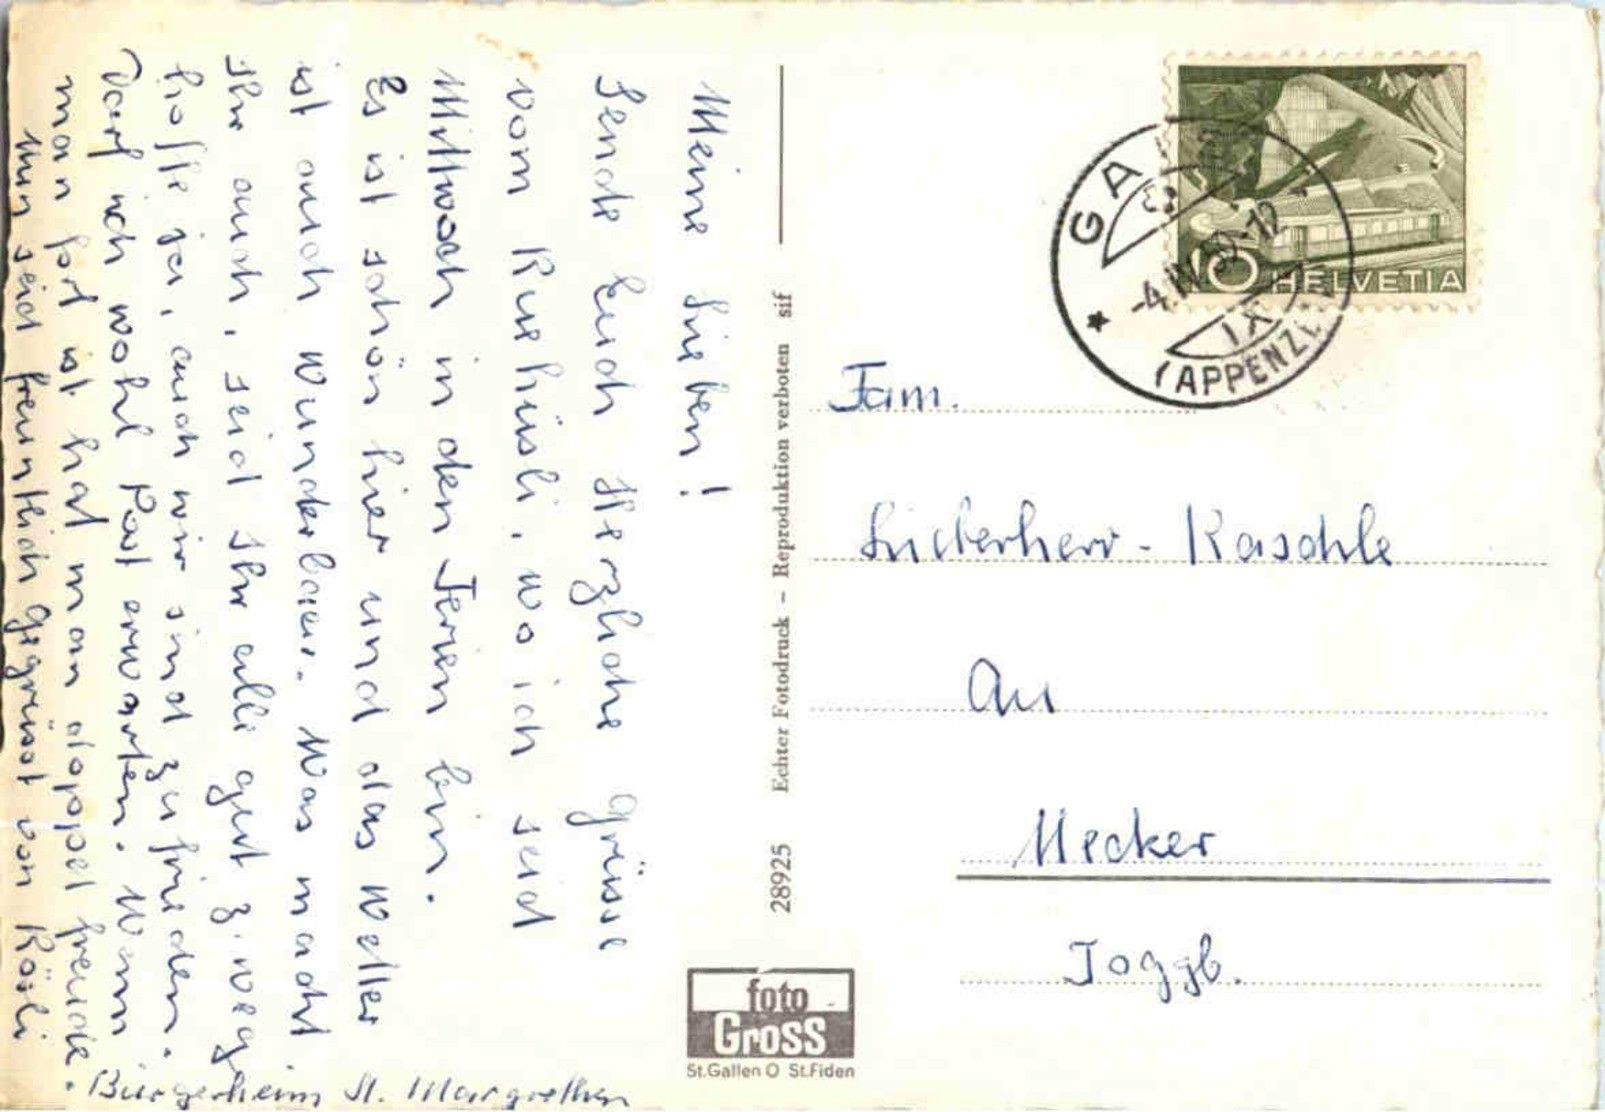 Meine Lieben!
Sende Euch Herzliche Grüsse
vom Ruehüsli, wo ich seid
Mittwoch in den Ferien bin.
Es ist schön hier und das Wetter
ist auch Wunderbar. Was macht
Ihr auch, seid Ihr alle gut z. weg
hoffe ja, auch wir sind zufrieden.
Darf ich wohl Post erwarten. Wenn
man fort ist hat man doppel freude.
Nun seid freuntlich gegrüsst von Rösli
Bürgerheim St. Margrethen
28925 Echter Fotodruck – Reproduktion verboten sif
foto
Gross
St.Gallen O St.Fiden
GA
-4. IV. -12
IX
(APPENZ
10 HELVETIA
Fam.
Lückerherr - Kaschle
Au
Necker
Toggb.